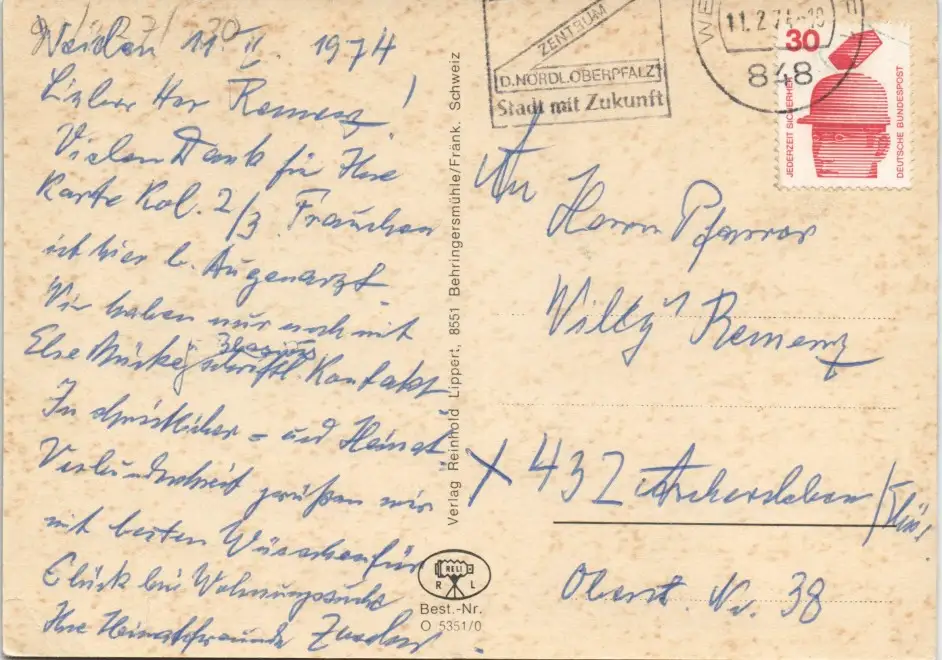 Weiden 11 II. 1974
Lieber Herr Remenz!
Vielen Dank für Ihre
Karte Kol. 2/3. Frauchen
ist hier b. Augenarzt
Wir haben nur noch mit
Else Mücke schriftl. Kontakt
In christlicher = und Heimat
Verbundenheit grüßen wir
mit besten Wünschen für
Glück bei Wohnungssuche
Ihre Heimatfreunde
Verlag Reinhold Lippert, 8551 Behringersmühle/Fränk. Schweiz
RELI
R L
Best.-Nr.
O 5351/0
ZENTRUM
D. NÖRDL. OBERPFALZ
Stadt mit Zukunft
11.2.74
848
30
JEDERZEIT SICHERHEIT
DEUTSCHE BUNDESPOST
An
Herrn Pfarrer
Willy Remenz
X 432 Aschersleben
Oberst. Nr. 38